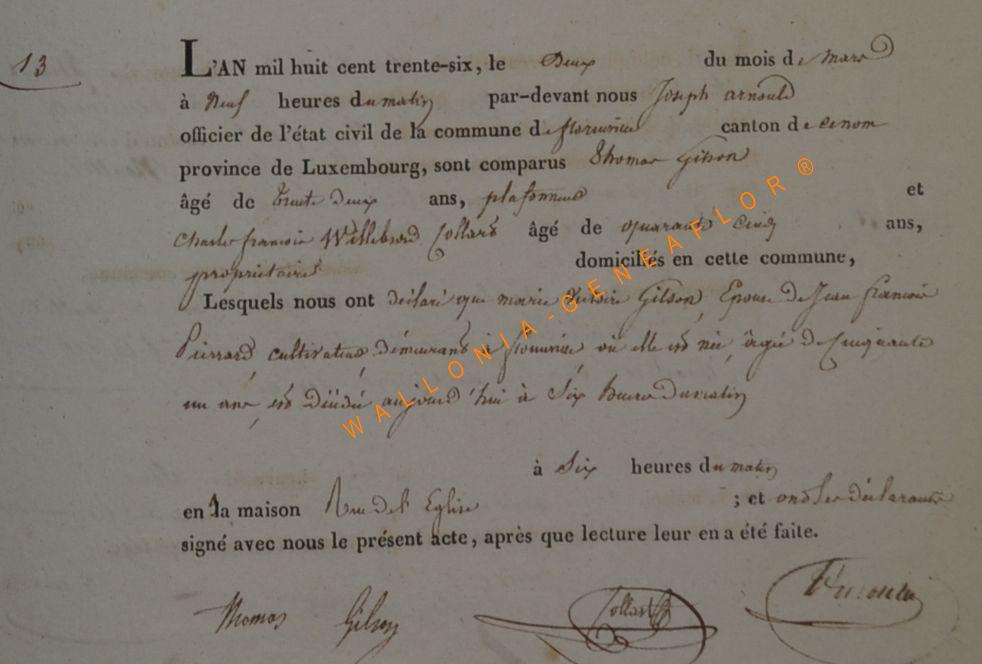 13
L'AN mil huit cent trente-six, le Deux du mois de mars
à Neuf heures du matin par-devant nous Joseph arnould
officier de l'état civil de la commune de florenville canton de
province de Luxembourg, sont comparus Thomas Gilson
âgé de trente deux ans, plafonneur et
Charles françois Willibrord Collard âgé de quarante cinq ans,
propriétaire domiciliés en cette commune,
Lesquels nous ont déclaré que marie Gilson, Epouse de Jean francois
Pierrard, cultivateur, démeurant à florenville où elle est née, agée de Cinquante
un ans, est Décédée aujourd'hui à Six heures Du matin
à Six heures du matin
en la maison Rue de l'Eglise ; et ont les déclarants
signé avec nous le présent acte, après que lecture leur en a été faite.
Thomas Gilson Collard
WALLONIA-GENEAFLOR®